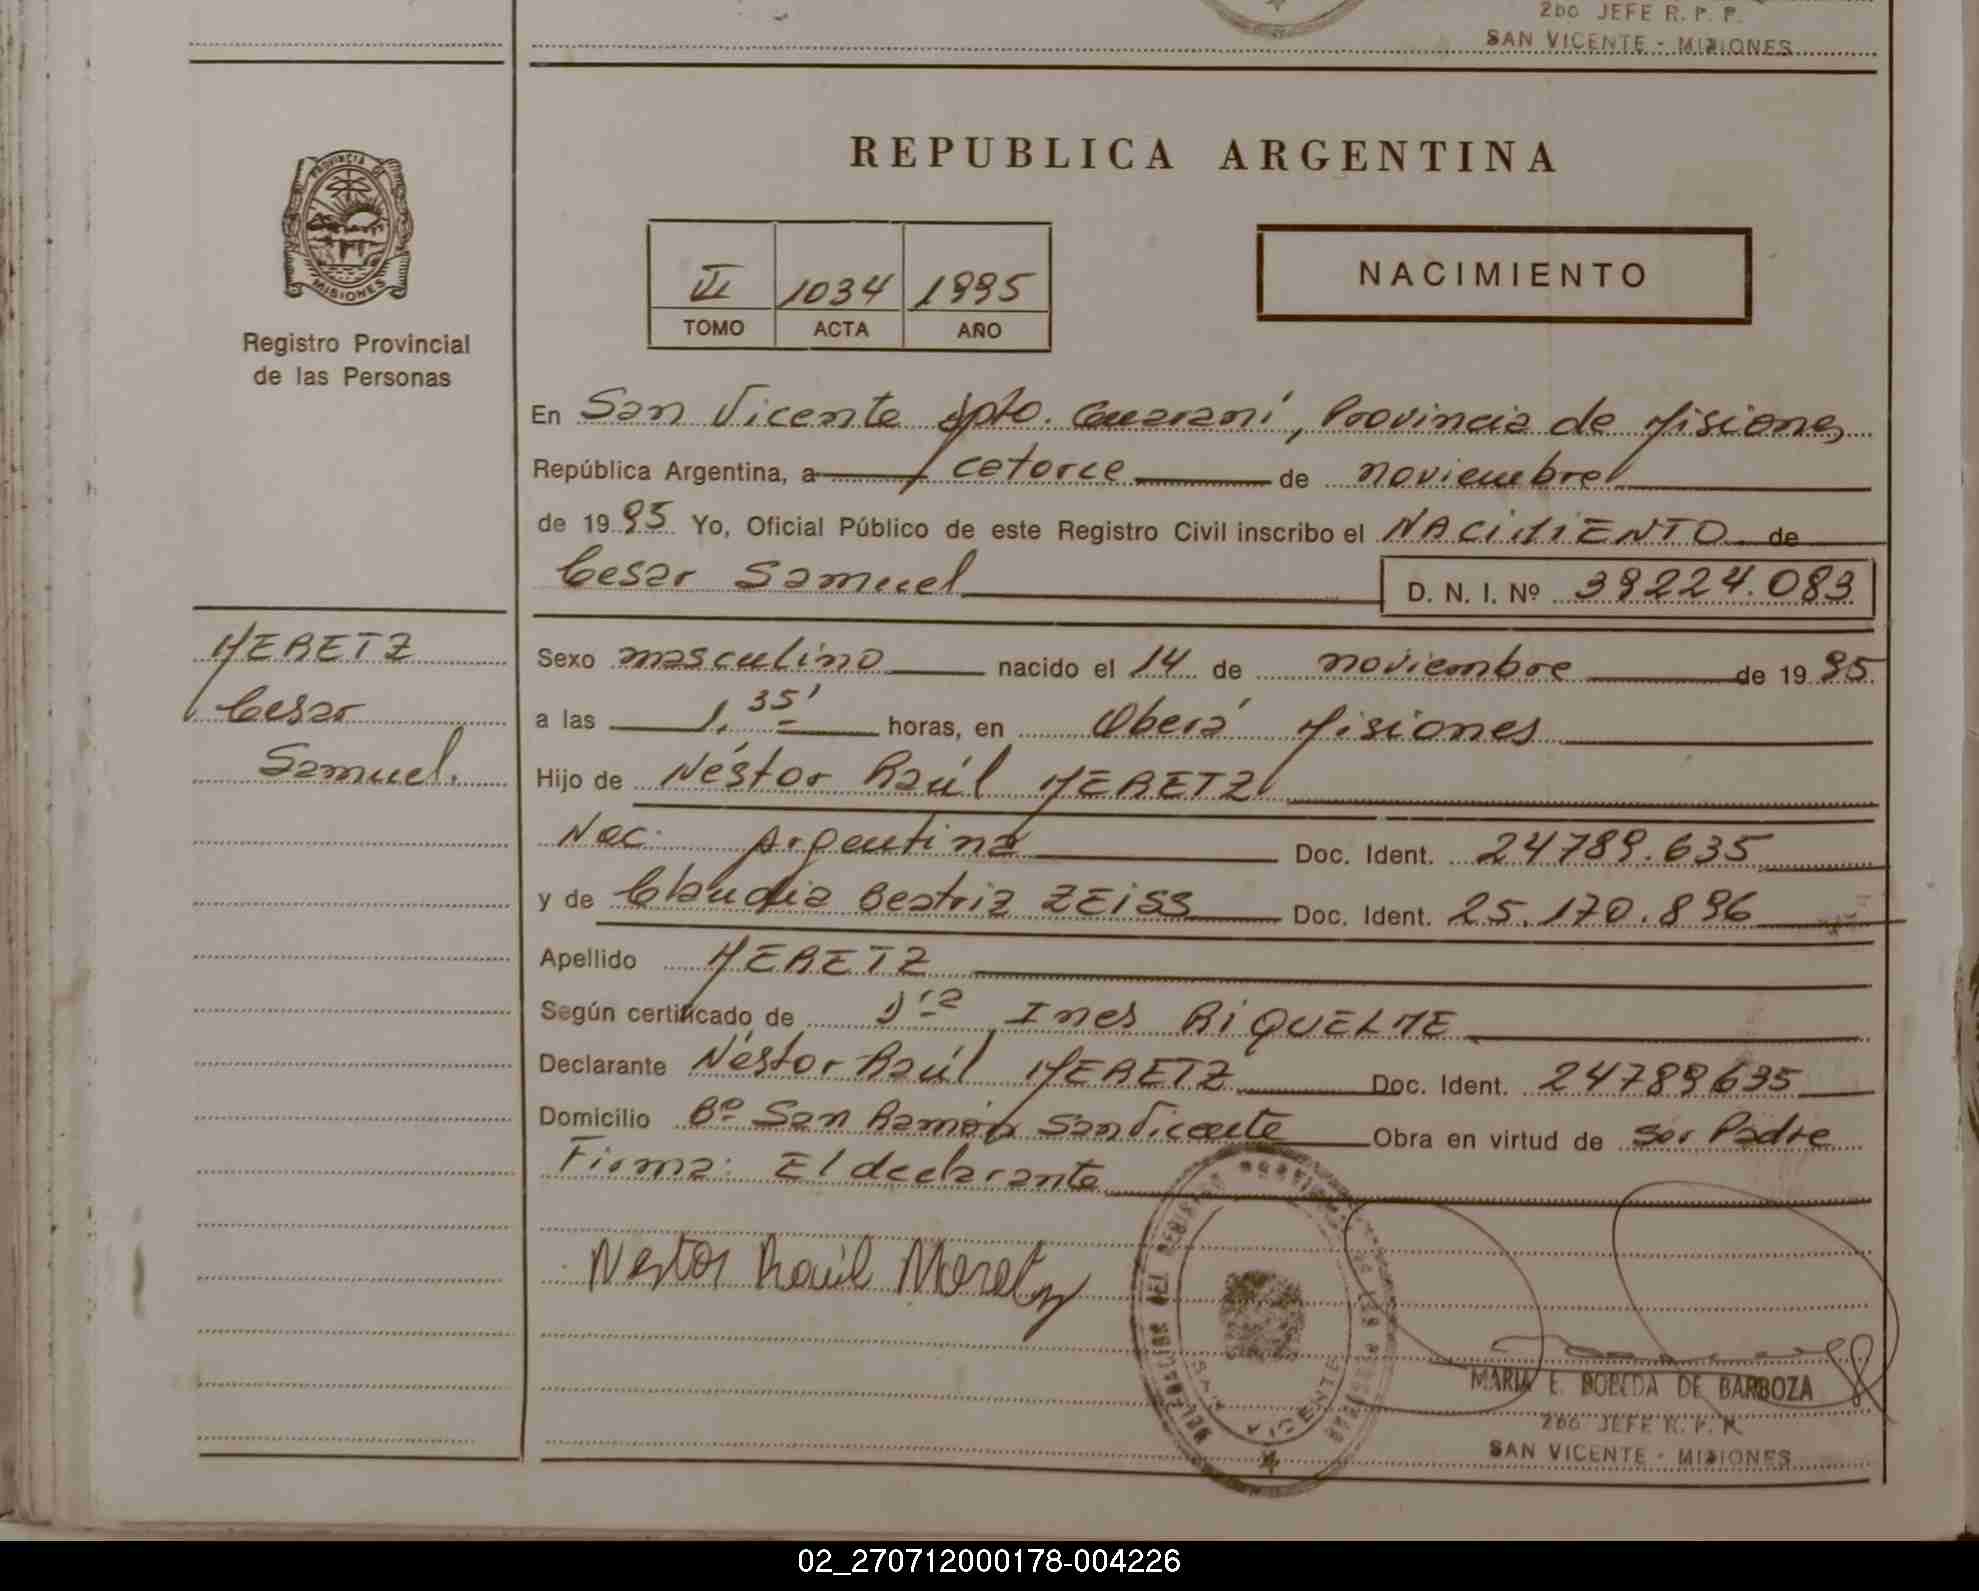 2do JEFE R. P. P.
SAN VICENTE - MISIONES
PROVINCIA DE
MISIONES
Registro Provincial
de las Personas
REPUBLICA ARGENTINA
II 1034 1995
TOMO ACTA AÑO
NACIMIENTO
En San Vicente dpto. Guaraní, Provincia de Misiones
República Argentina, a catorce de noviembre
de 1995 Yo, Oficial Público de este Registro Civil inscribo el NACIMIENTO de
Cesar Samuel D. N. I. Nº 39224.083
MERETZ
Cesar
Samuel.
Sexo masculino nacido el 14 de noviembre de 1995
a las 1,35' horas, en Oberá Misiones
Hijo de Néstor Raúl MERETZ
Nac. Argentina Doc. Ident. 24789.635
y de Claudia Beatriz ZEISS Doc. Ident. 25.170.896
Apellido MERETZ
Según certificado de Dra Ines RIQUELME
Declarante Néstor Raúl MERETZ Doc. Ident. 24789635
Domicilio Bº San Ramón San Vicente Obra en virtud de ser Padre
Firma: El declarante
Nestor Raúl Meretz
SAN VICENTE
MARIA E. BOBEDA DE BARBOZA
2do JEFE R. P. P.
SAN VICENTE - MISIONES
02_270712000178-004226